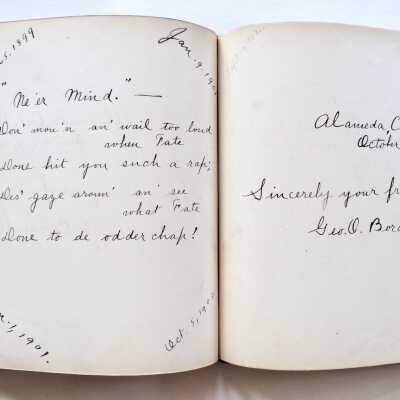 5, 1899
Jan. 9, 190
"Ne'er Mind." —
Don' mou'n an' wail too loud
when Fate
Done hit you such a rap;
Des' gage aroun' an' see
what Fate
Done to de odder chap!
1, 1901.
Oct. 5, 190
Alameda, C
October
Sincerely your fr
Geo. O. Bor